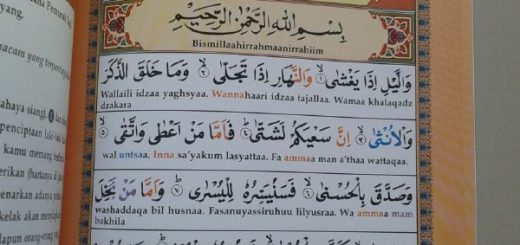 بِسْمِ اللهِ الرَّحْمٰنِ الرَّحِيْمِ
Bismillaahirrahmaanirrahiim
وَالَّيْلِ اِذَا يَغْشٰى ١ وَالنَّهَارِ اِذَا تَجَلّٰى ٢ وَمَا خَلَقَ الذَّكَرَ
Wallaili idzaa yaghsyaa. Wannahaari idzaa tajallaa. Wamaa khalaqadz
dzakara
وَالْاُنْثٰى ٣ اِنَّ سَعْيَكُمْ لَشَتّٰى ٤ فَاَمَّا مَنْ اَعْطٰى وَاتَّقٰى ٥
wal untsaa. Inna sa'yakum lasyattaa. Fa ammaa man a'thaa wattaqaa.
وَصَدَّقَ بِالْحُسْنٰى ٦ فَسَنُيَسِّرُهٗ لِلْيُسْرٰى ٧ وَاَمَّا مَنْ بَخِلَ
washaddaqa bil husnaa. Fasanuyassiruhuu lilyusraa. Wa ammaa mam
bakhila
yang.
macam yang
ahaya siang
penciptaan laki-laki
kamu memang
berikan (hartanya di
enarkan adanya
kelak akan